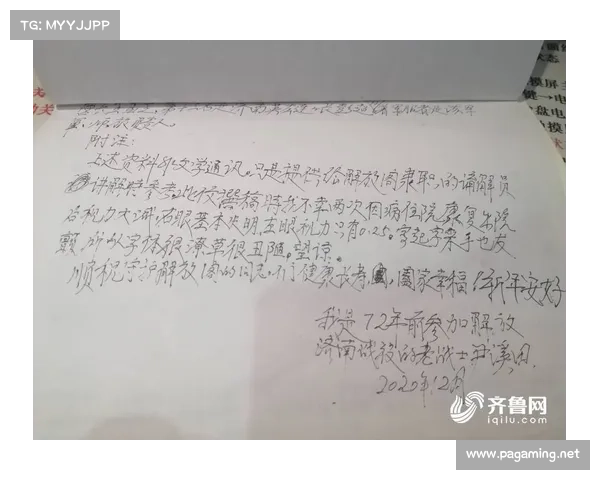 TG: MYYJJPP
附注:
上述资料和文学通讯.只是提供给解放阁兼职的讲解员
讲解时参考.此校 稿时我不幸两次因病住院康复出院
后视力大减,右眼基本失明,左眼视力只有0.25.写起字来手也发
颤,所以字体很潦草很丑陋。望谅。
顺祝守护解放阁的同志们健康长寿, 阖家幸福 新年安好
我是72年前参加解放
济南战役的老战士
2020年12月
齐鲁网
iqilu.com
www.pagaming.net